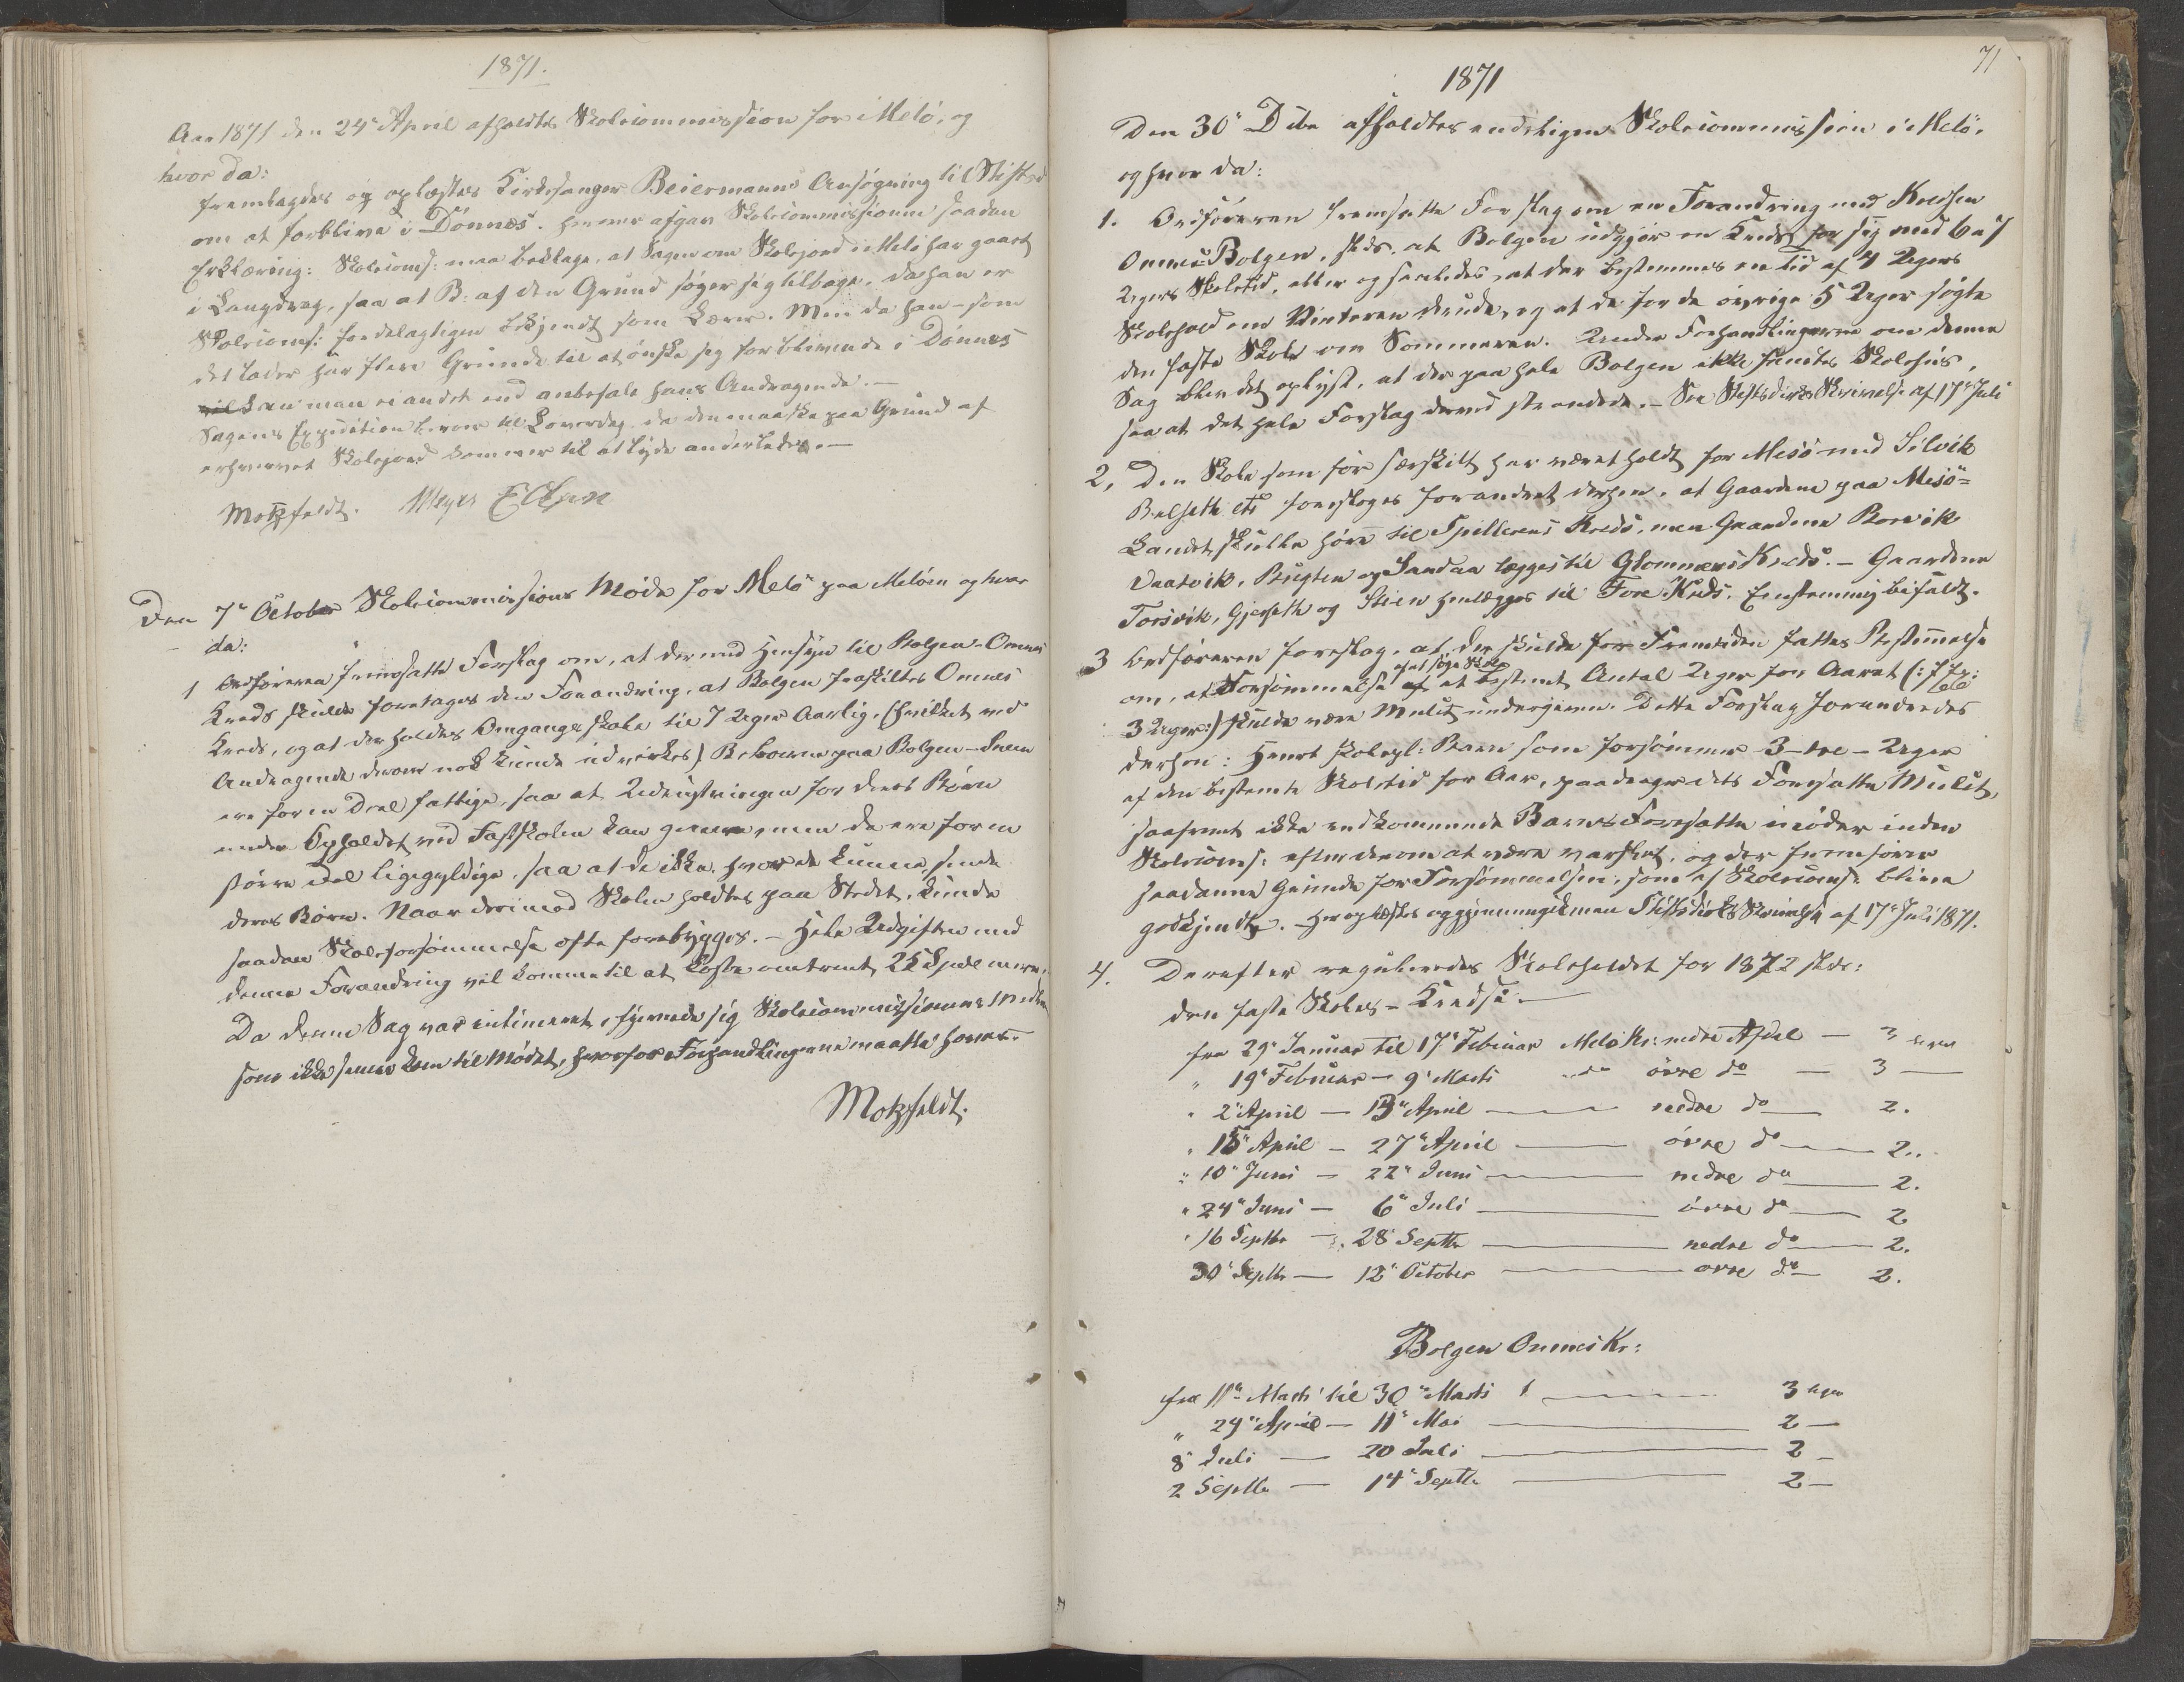 1871.
Aar 1871 den 24de April afholdtes Skolecommission for Melö, og
hvor da:
fremlagdes og oplæstes Kirkesanger Beiermanns Ansögning til Stiftsd
om at forblive i Dönnæs. herover afgav Skolecommissionen saadan
Erklæring: Skolecoms: maa beklage, at Sagen om Skolejord i Melö har gaaet
i Langdrag, saa at B: af den Grund söger sig tilbage, da han er
Skolecoms: fordelagtigen bekjendt som Lærer. Men da han – som
det lader har flere Grunde til at önske sig forblivende i Dönnes
kan man ei andet end anbefale hans Andragende. –
Sagens Expedition beroer til Löverdag, da den maaske paa Grund af
erhvervet Skolejord kommer til at lyde anderledes. –
Motzfeldt. Meyer
Den 7de October Skolecommissions Möde for Melö paa Melöen og hvor
da:
1 Ordföreren fremsatte Forslag om, at der med Hensyn til Bolgen-Onnes
Kreds skulde foretages den Forandring, at Bolgen fraskiltes Onnes
Kreds, og at der holdes Omgangsskole til 7 Uger Aarlig, (hvilket ved
Andragende derom nok kunde udvirkes) Beboerne paa Bolgen –
ere for en Deel fattige, saa at Udrustningen for deres Börn
under Opholdet ved Fastskolen kan genere, men de ere for en
större Del ligegyldige, saa at de ikke, hvor de kunne, sende
deres Börn. Naar derimod Skolen holdtes paa Stedet, kunde
saadan Skoleforsömmelse ofte forebygges. – Hele Udgiften med
denne Forandring vil komme til at koste omtrent 25 Spdl mere.
Da denne Sag var intimeret, fjernede sig Skolecommissionens Medl
som ikke senere kom til Mödet, hvorfor Forhandlingerne maatte hæves. –
Motzfeldt.
71
1871
Den 30te Dcbr afholdtes endeligen Skolecommission i Melö.
og hvor da:
1. Ordföreren fremsatte Forslag om en Forandring med Kredsen
Onnes Bolgen, skds. at Bolgen udgjör en Kreds for sig med 6 a 7
Ugers Skoletid, eller og saaledes, at der bestemmes en Tid af 4 Ugers
Skolehold om Vinteren derude, og at de for de övrige 5 Uger sögte
den faste Skole om Sommeren. Under Forhandlingerne om denne
Sag blev det oplyst, at der paa hele Bolgen ikke fandtes Skolehus,
saa at det hele Forslag derved strandede. – See Stiftsdirs Skrivelse af 17de Juli
2, Den Skole som för særskilt har været holdt for Mesö med Selvik
Belseth etc foresloges forandret derhen, at Gaardene paa Mesö=
Landet skulle höre til Spilderens Kreds, men Gaardene Borvik
Vaatvik, Bugten og Sandaa lægges til Glomnæs Kreds. – Gaardene
Torsvik, Gjerseth og Stien henlægges til Fore Kreds. Eenstemmig bifaldt.
3 Ordföreren foreslog, at der skulde for Fremtiden fattes Bestemmelse
af at söge Skole
om, at Forsömmelse af et bestemt Antal Uger for Aaret (: f. Ex:
3 Uger:) skulde være Mulct undergiven. Dette Forslag forandredes
derhen: Hvert skolepl: Barn som forsömmer 3 – tre – Uger
af den bestemte Skoletid for Aar, paadrager dets Foresatte Mulct,
saafremt ikke vedkommende Barns Foresatte möder inden
Skolecoms: efter derom at være varslet, og der fremförer
saadanne Grunde for Forsömmelsen, som af Skolecoms: blive
godkjendte. – Her oplæstes og gjennemgikman Stiftsdirs Skrivelse af 17de Juli 1871.
4. Derefter reguleredes Skoleholdet for 1872 skds:
den faste Skoles – Kredse –
fra 29de Januar til 17de Februar Melö Kr: nedre Afdel – 3 Uger
" 19de Februar – 9de Marts " do övre do – 3 –
" 2de April – 13de April – nedre do – 2.
" 15de April – 27de April – övre do – 2.
" 10de Juni – 22de Juni – nedre do – 2.
" 24de Juni – 6te Juli – övre do – 2
" 16 Septbr – 28 Septbr – nedre do – 2.
30te Septbr – 12te October – övre do – 2.
Bolgen Onnes Kr:
fra 11te Marts til 30te Marts – 3 Uger
" 29de April – 11te Mai – 2 –
8de Juli – 20 Juli – 2 –
2 Septbr – 14de Septbr – 2 –